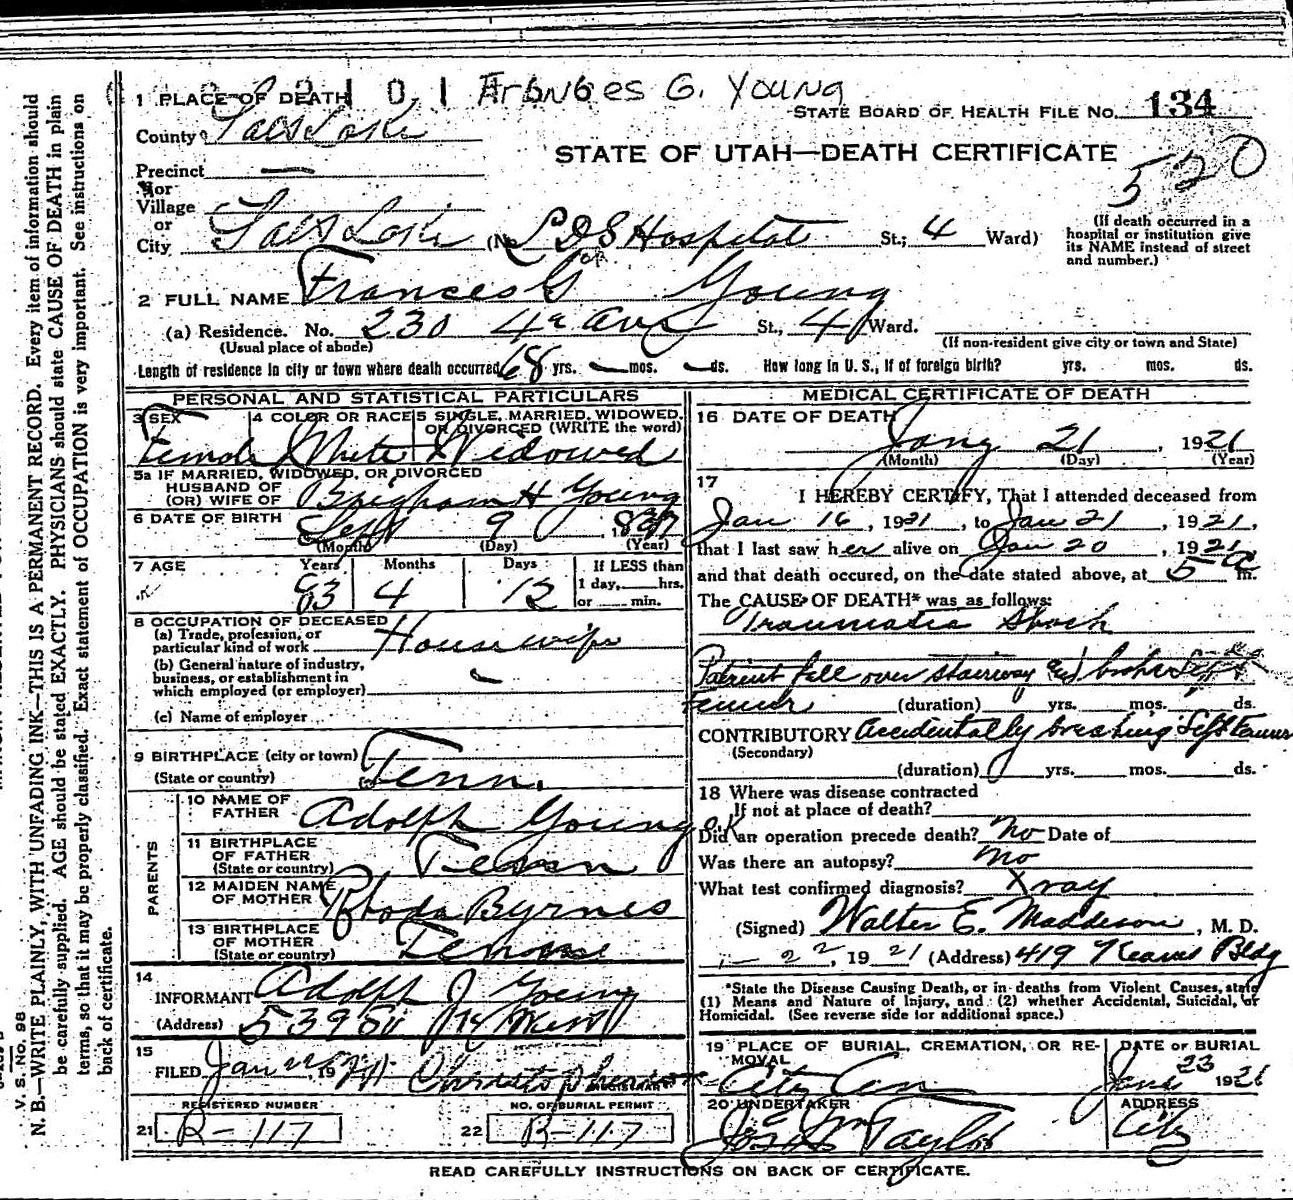 1 0 1 Frances G. Young
1 PLACE OF DEATH
STATE BOARD OF HEALTH FILE No. 134
County Salt Lake
STATE OF UTAH—DEATH CERTIFICATE
520
Precinct —
or
Village
or
City Salt Lake (No LDS Hospital St.; 4 Ward)
(If death occurred in a hospital or institution give its NAME instead of street and number.)
2 FULL NAME Frances G Young
(a) Residence. No. 230 4th Ave St., 4 Ward.
(Usual place of abode) (If non-resident give city or town and State)
Length of residence in city or town where death occurred 68 yrs. — mos. — ds. How long in U. S., if of foreign birth? yrs. mos. ds.
PERSONAL AND STATISTICAL PARTICULARS
3 SEX 4 COLOR OR RACE 5 SINGLE, MARRIED, WIDOWED, OR DIVORCED (WRITE the word)
Female White Widowed
5a IF MARRIED, WIDOWED, OR DIVORCED
HUSBAND OF
(OR) WIFE OF Brigham H Young
6 DATE OF BIRTH Sept 9, 1837
(Month) (Day) (Year)
7 AGE Years Months Days If LESS than
1 day, hrs.
or min.
83 4 12
8 OCCUPATION OF DECEASED
(a) Trade, profession, or
particular kind of work Housewife
(b) General nature of industry,
business, or establishment in
which employed (or employer)
(c) Name of employer
9 BIRTHPLACE (city or town)
(State or country) Tenn.
PARENTS
10 NAME OF
FATHER Adolph Young
11 BIRTHPLACE
OF FATHER
(State or country) Tenn
12 MAIDEN NAME
OF MOTHER Rhoda Byrnes
13 BIRTHPLACE
OF MOTHER
(State or country)
14
INFORMANT Adolph J Young
(Address) 539
15
FILED Jan
REGISTRAR
REGISTERED NUMBER NO. OF BURIAL PERMIT
21 R-117 22 R-117
MEDICAL CERTIFICATE OF DEATH
16 DATE OF DEATH
Jany 21, 1921
(Month) (Day) (Year)
17
I HEREBY CERTIFY, That I attended deceased from
Jan 16, 1921, to Jan 21, 1921,
that I last saw her alive on Jan 20, 1921
and that death occured, on the date stated above, at 5 a m.
The CAUSE OF DEATH* was as follows:
Traumatic Shock
Patient fell over stairway and broke left
Femur (duration) yrs. mos. ds.
CONTRIBUTORY Accidentally breaking left Femur
(Secondary)
(duration) yrs. mos. ds.
18 Where was disease contracted
If not at place of death?
Did an operation precede death? No Date of
Was there an autopsy? no
What test confirmed diagnosis? X ray
(Signed) Walter E. Maddison, M. D.
22, 1921 (Address) 419 Kearns Bldg
*State the Disease Causing Death, or in deaths from Violent Causes, state
(1) Means and Nature of Injury, and (2) whether Accidental, Suicidal, or
Homicidal. (See reverse side for additional space.)
19 PLACE OF BURIAL, CREMATION, OR RE-
MOVAL
DATE OF BURIAL
City Cem Jan 23 1921
20 UNDERTAKER ADDRESS
Jos Wm Taylor City
READ CAREFULLY INSTRUCTIONS ON BACK OF CERTIFICATE.
V. S. No. 98
N. B.—WRITE PLAINLY, WITH UNFADING INK—THIS IS A PERMANENT RECORD. Every item of information should
be carefully supplied. AGE should be stated EXACTLY. PHYSICIANS should state CAUSE OF DEATH in plain
terms, so that it may be properly classified. Exact statement of OCCUPATION is very important. See instructions on
back of certificate.